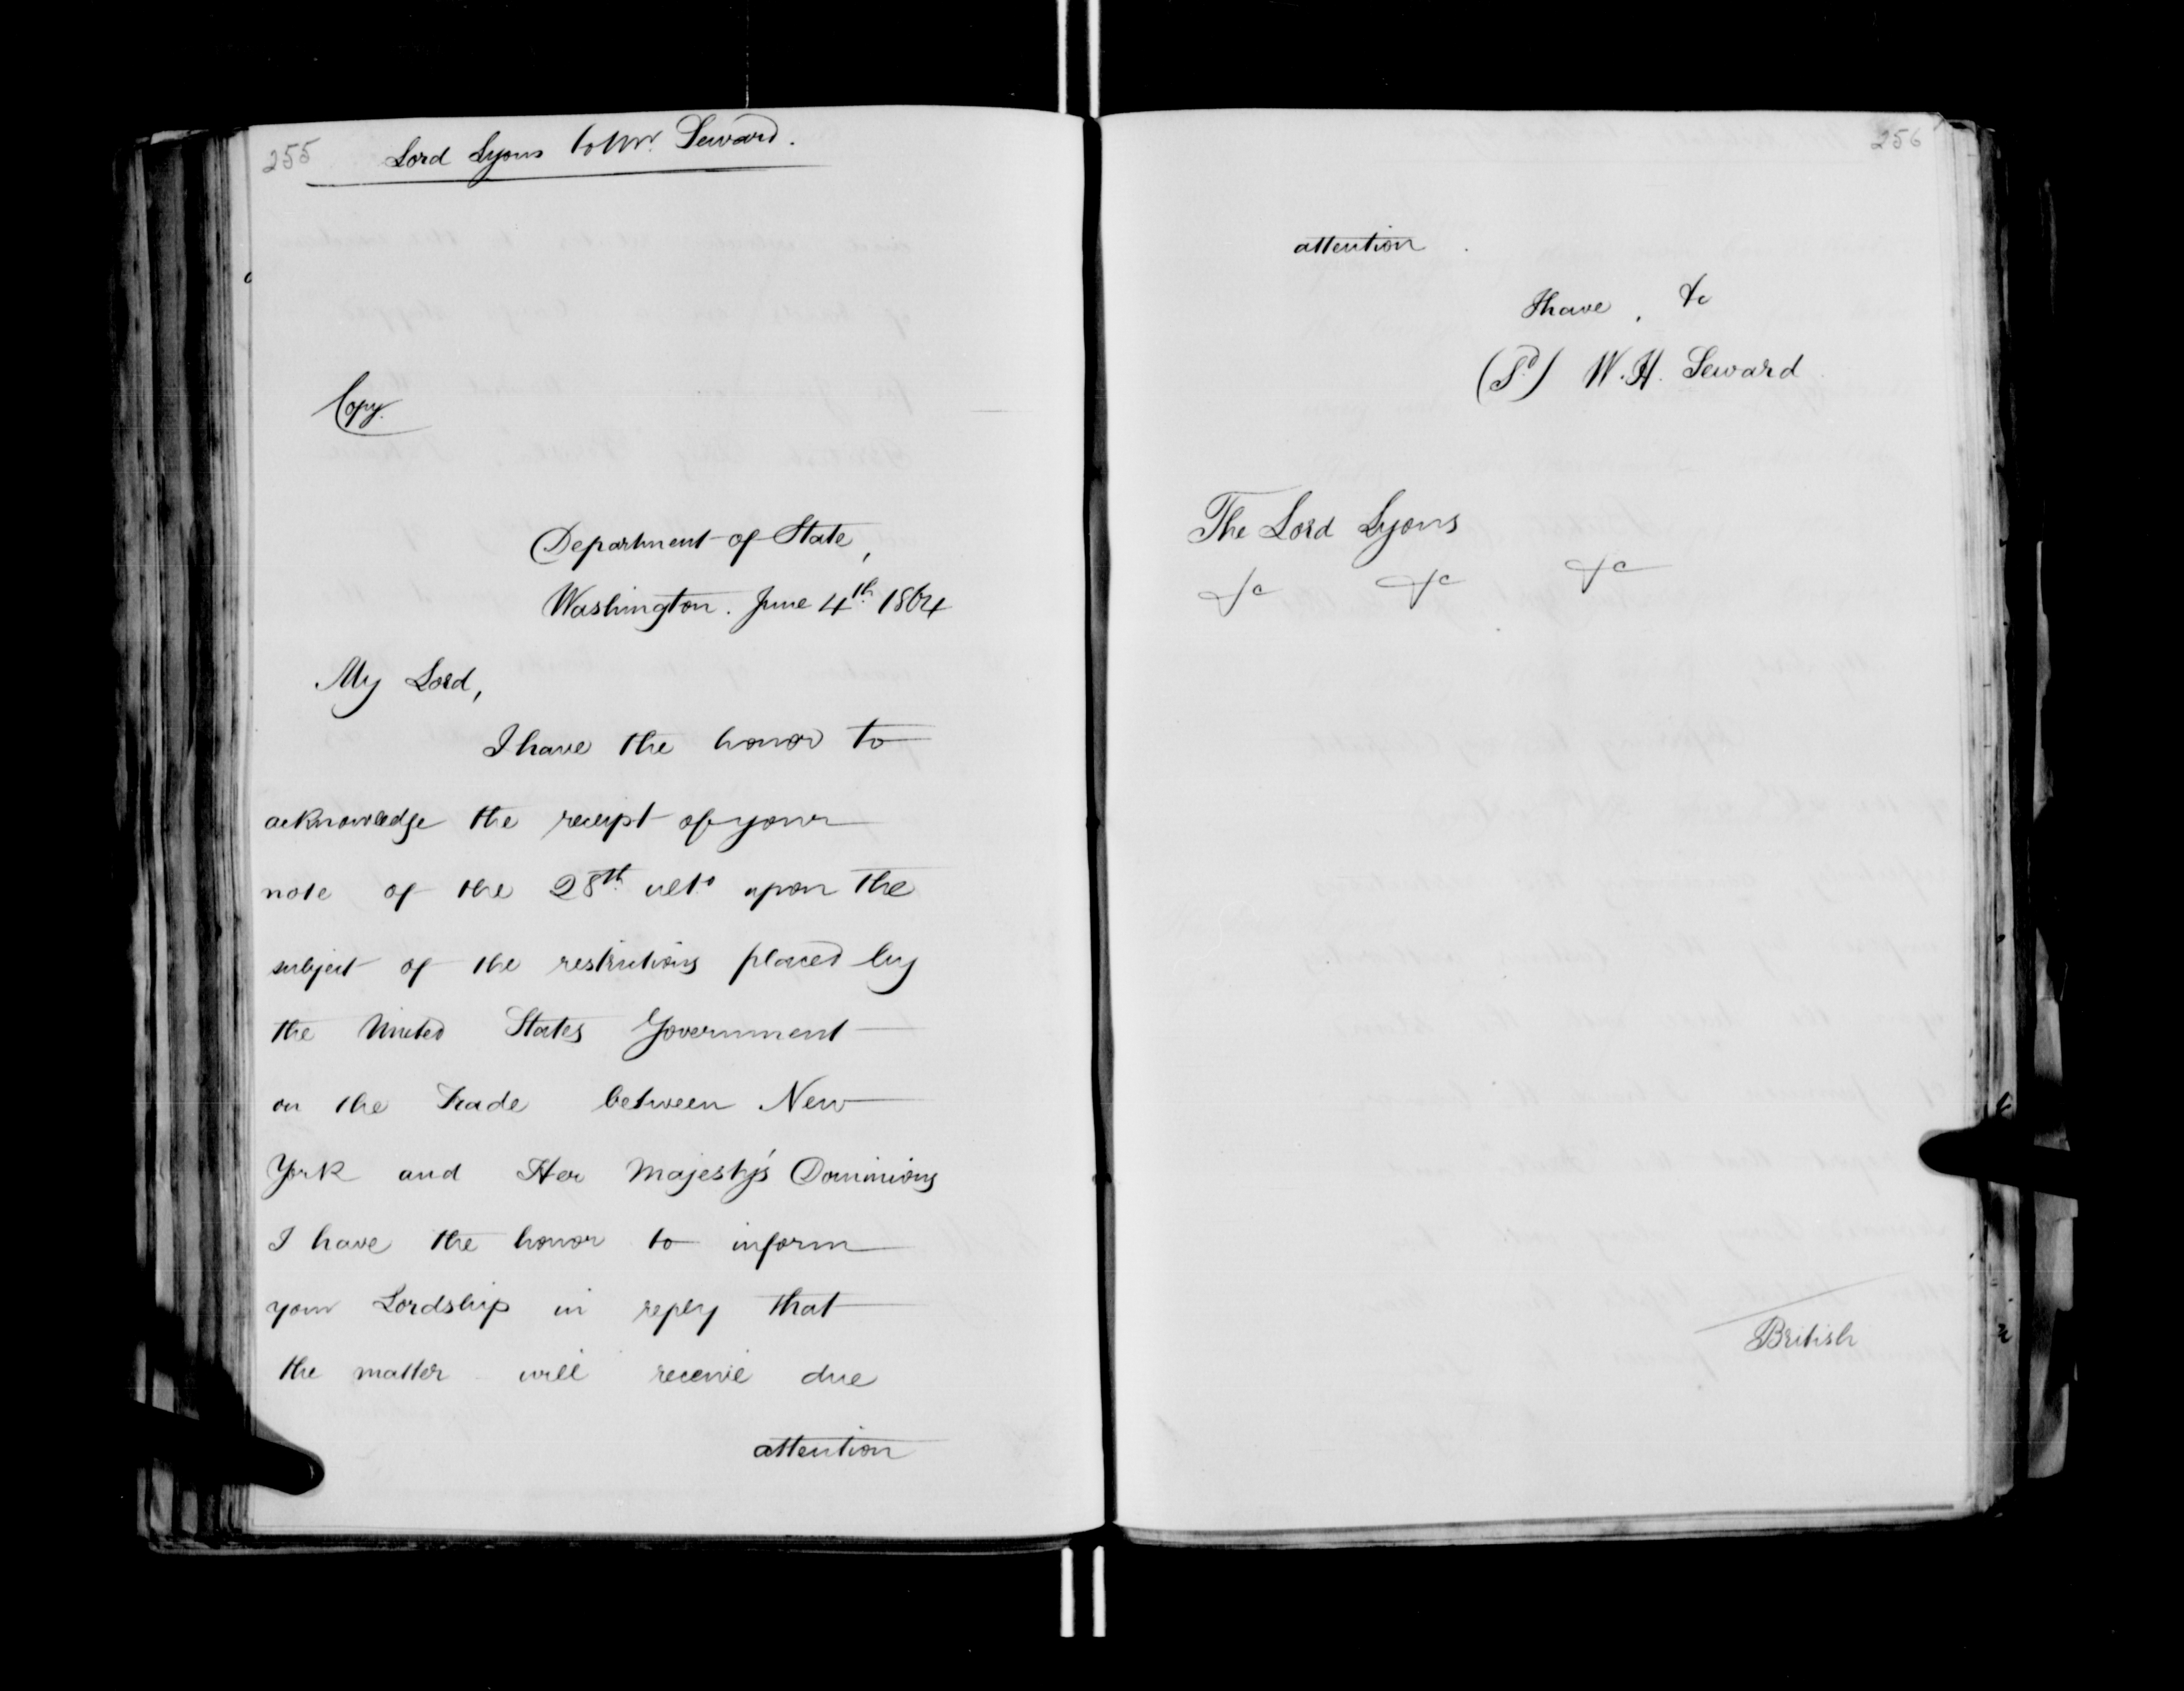 255
Lord Lyons to Mr. Seward.
Copy.
Department of State,
Washington. June 4th 1864
My Lord,
I have the honor to
acknowledge the receipt of your
note of the 28th ulto upon the
subject of the restrictions placed by
the United States Government
on the Trade between New
York and Her Majesty's Dominions
I have the honor to inform
your Lordship in reply that
the matter will receive due
attention
256
attention.
I have, &c
(Sd) W. H. Seward
The Lord Lyons
&c &c &c
British